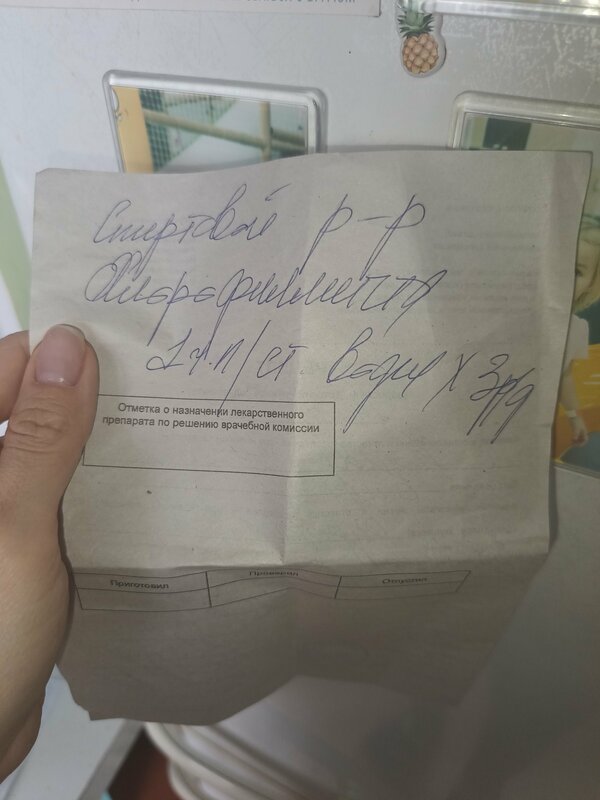 Спиртовой р-р
Хлорофиллипта
1 ч.л/ст. воды х 3р/д
Отметка о назначении лекарственного
препарата по решению врачебной комиссии
Приготовил Проверил Отпустил